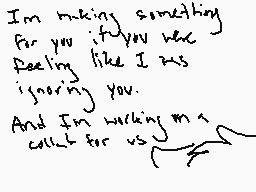 Im making something
for you if you were
feeling like I was
ignoring you.
And Im working on a
collab for us